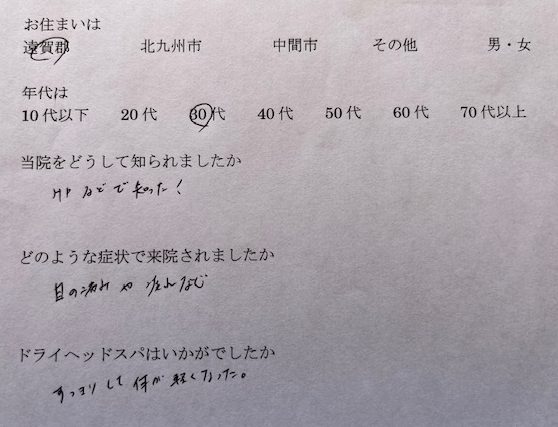 お住まいは
遠賀郡 北九州市 中間市 その他 男・女
年代は
10代以下 20代 30代 40代 50代 60代 70代以上
当院をどうして知られましたか
HPなどで知った!
どのような症状で来院されましたか
目の痛みや疲れなど
ドライヘッドスパはいかがでしたか
すっきりして体が軽くなった。